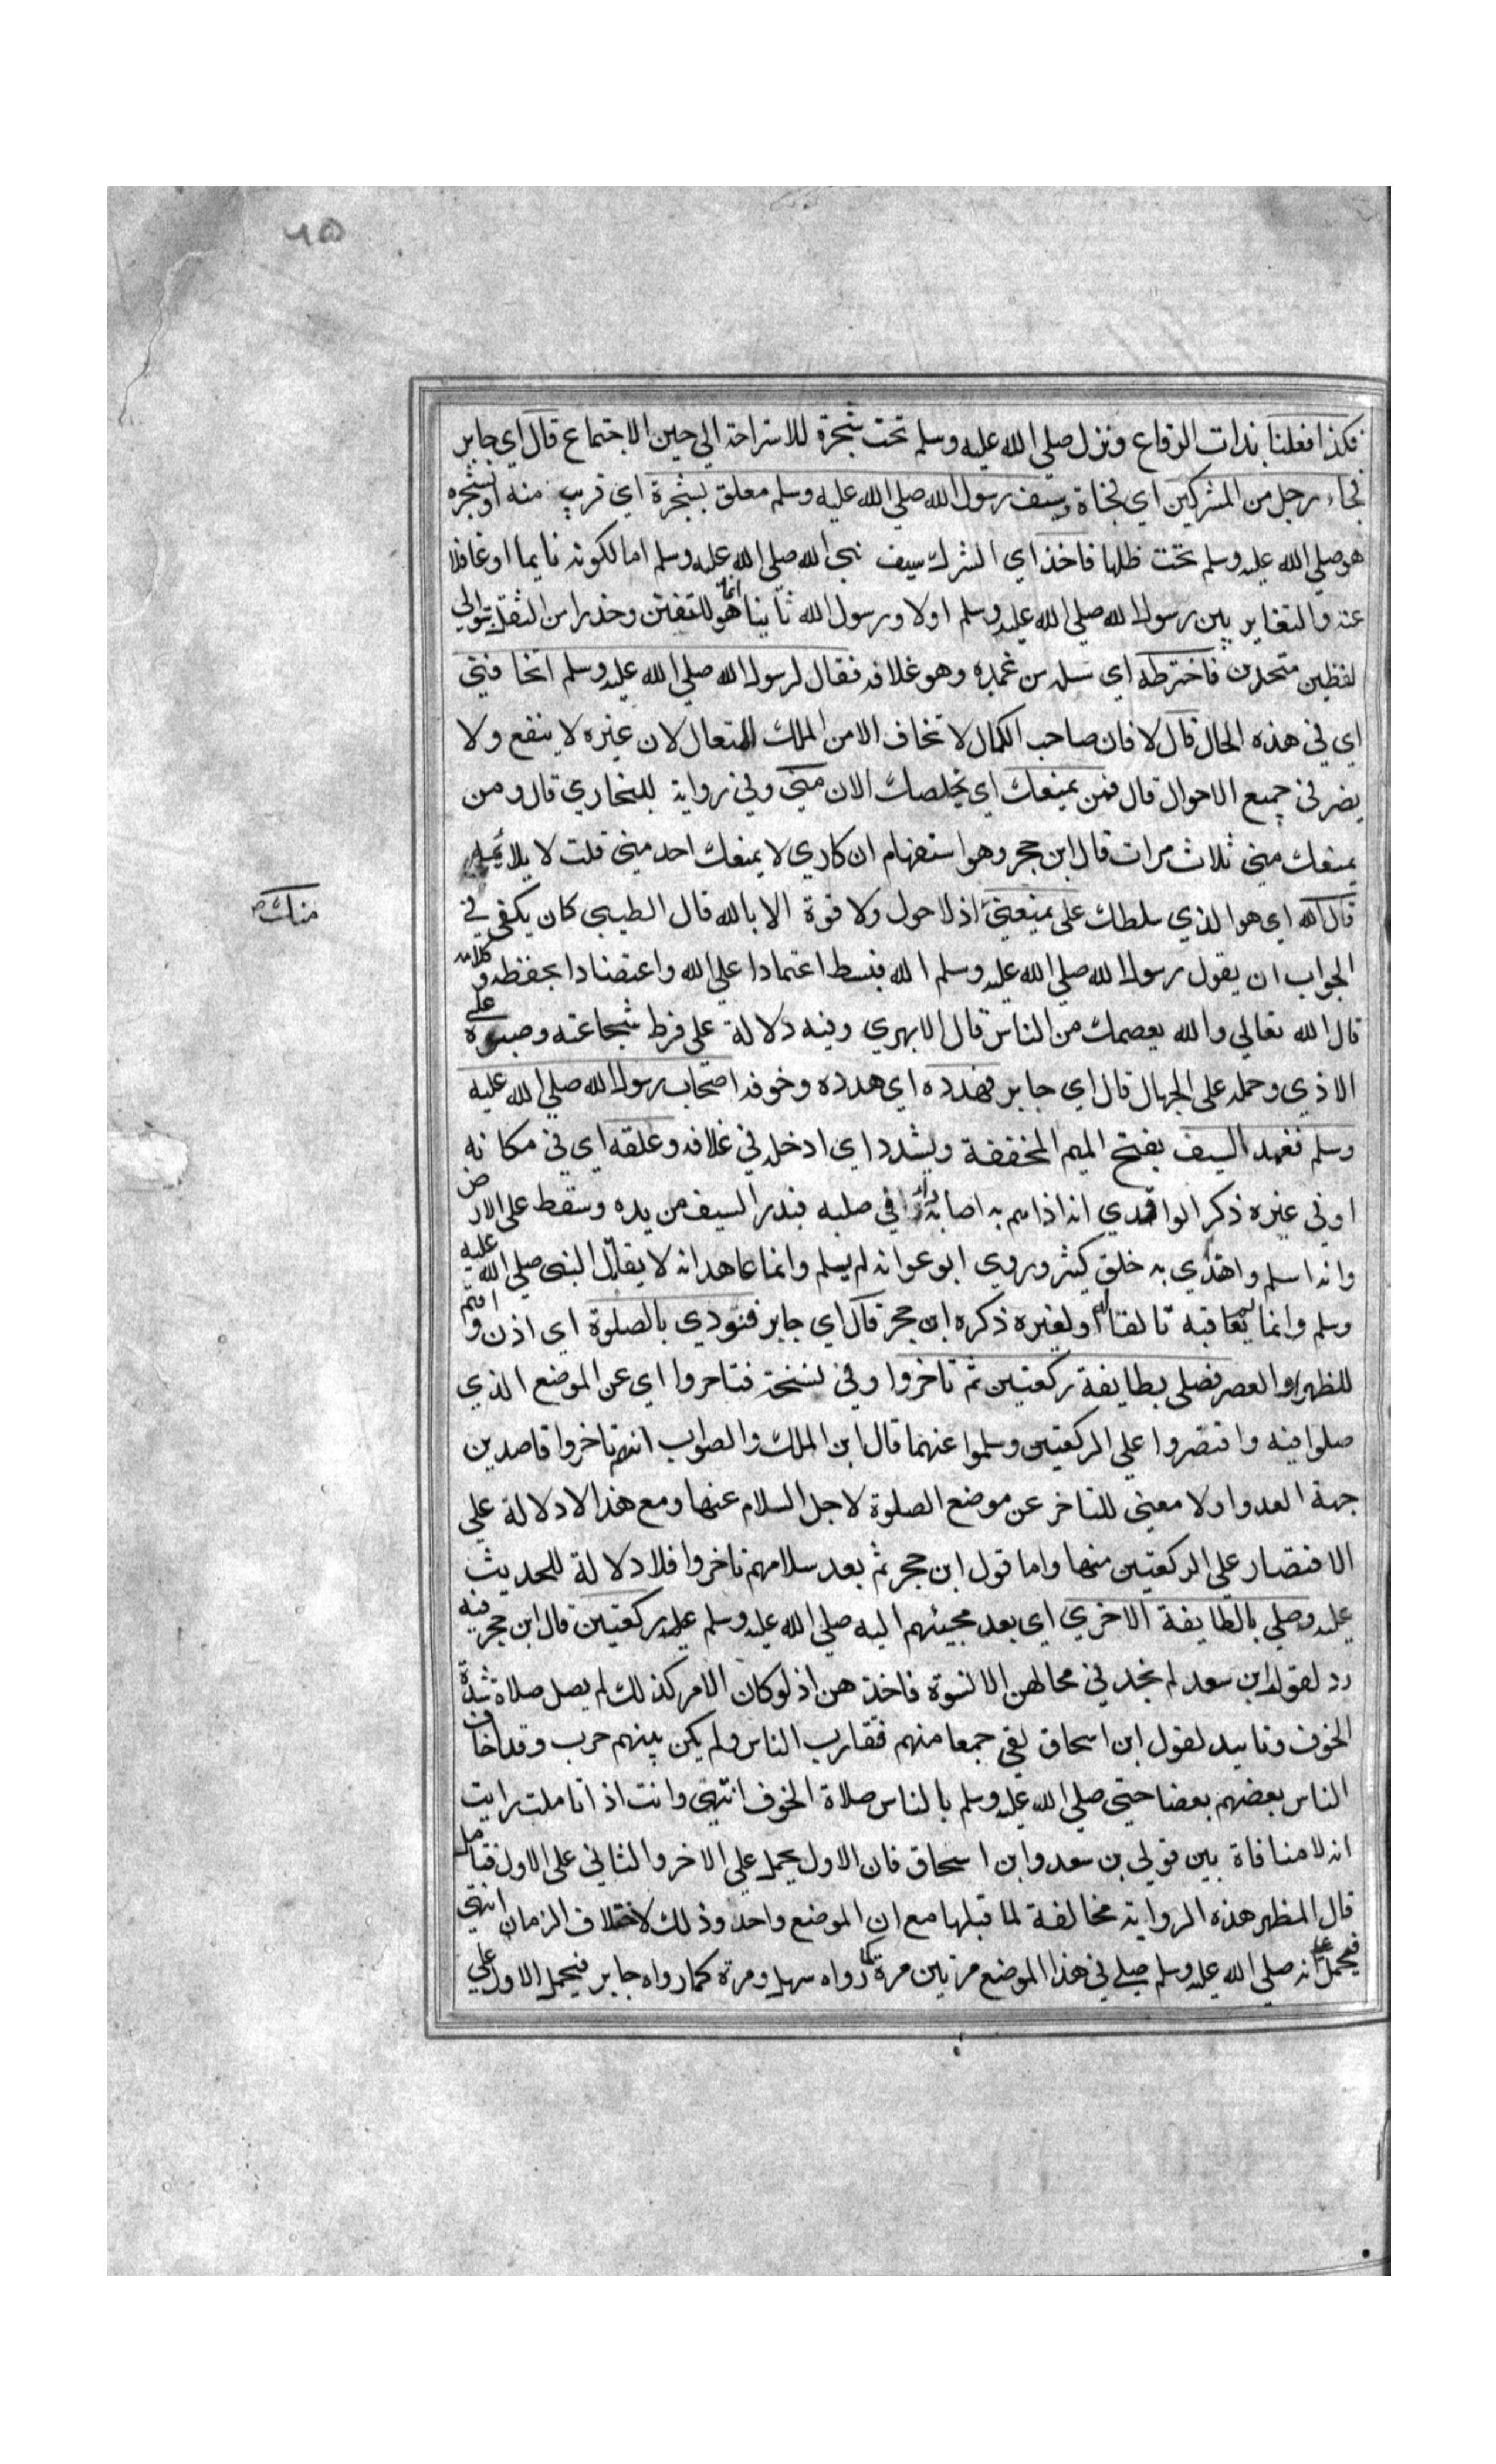 ٦٥
فكذا فعلنا بذات الرقاع ونزل صلي الله عليه وسلم تحت شجرة للاستراحة الي حين الاجتماع قال اي جابر
فجاء رجل من المشركين اي فجاة وسيف رسول الله صلي الله عليه وسلم معلق بشجرة اي قريب منه او بشجره
هو صلي الله عليه وسلم تحت ظلها فاخذ اي المشرك سيف نبي الله صلي الله عليه وسلم اما لكونه نايما او غافلا
عنه والتغاير بين رسول الله صلي الله عليه وسلم اولا ورسول الله ثانيا انما هو للتفنن وحذرا من الثقل بتوالي
لفظين متحدين فاخترطه اي سله من غمده وهو غلافه فقال لرسول الله صلي الله عليه وسلم اتخافني
اي في هذه الحال قال لا فان صاحب الكمال لا تخاف الا من الملك المتعال لان غيره لا ينفع ولا
يضر في جميع الاحوال قال فمن يمنعك اي يخلصك الان مني وفي رواية للبخاري قال ومن
يمنعك مني ثلاث مرات قال ابن حجر وهو استفهام انكاري لا يمنعك احد مني قلت لا يلائمه
قال الله اي هو الذي سلطك علي يمنعني اذ لا حول ولا قوة الا بالله قال الطيبي كان يكفي في
منك ص
الجواب ان يقول رسول الله صلي الله عليه وسلم الله فبسط اعتمادا علي الله واعتضادا بحفظه وكلامه
قال الله تعالي والله يعصمك من الناس قال الابهري وفيه دلالة علي فرط شجاعته وصبره علي
الاذي وحمله علي الجهال قال اي جابر فهدده اي هدده وخوفه اصحاب رسول الله صلي الله عليه
وسلم فغمد السيف بفتح الميم المخففة ويشدد اي ادخله في غلافه وعلقه اي في مكانه
او في غيره ذكر الواقدي انه اذا هم به اصابه داء في صلبه فبدر السيف من يده وسقط علي الارض
وانه اسلم واهتدي به خلق كثير وروي ابو عوانه لم يسلم وانما عاهد انه لا يقاتل النبي صلي الله عليه
وسلم وانما لم يعاقبه تالفا له او لغيره ذكره ابن حجر قال اي جابر فنودي بالصلوة اي اذن واقيم
للظهر او العصر فصلي بطايفة ركعتين ثم تاخروا وفي نسخة فتاخروا اي عن الموضع الذي
صلوا فيه واقتصروا علي الركعتين وسلموا عنهما قال ابن الملك والصواب انهم تاخروا قاصدين
جهة العدو او لا معني للتاخر عن موضع الصلوة لاجل السلام عنها ومع هذا لا دلالة علي
الاقتصار علي الركعتين منها واما قول ابن حجر ثم بعد سلامهم تاخروا فلا دلالة للحديث
عليه وصلي بالطايفة الاخري اي بعد مجيئهم اليه صلي الله عليه وسلم عليه ركعتين قال ابن حجر فيه
رد لقول ابن سعد لم نجد في محالهن الا نسوة فاخذهن اذ لو كان الامر كذلك لم يصل صلاة شدة
الخوف وتاييد لقول ابن اسحاق لقي جمعا منهم فتقارب الناس ولم يكن بينهم حرب وقد اخاف
الناس بعضهم بعضا حتي صلي الله عليه وسلم بالناس صلاة الخوف انتهي وانت اذا تاملت رايت
انه لا منافاة بين قولي بن سعد وابن اسحاق فان الاول يحمل علي الاخر والثاني علي الاول فتامل
قال المظهر هذه الرواية مخالفة لما قبلها مع ان الموضع واحد وذلك لاختلاف الزمان انتهي
فيحمل علي انه صلي الله عليه وسلم صلي في هذا الموضع مرتين مرة كما رواه سهل ومرة كما رواه جابر فيحمل الاول علي